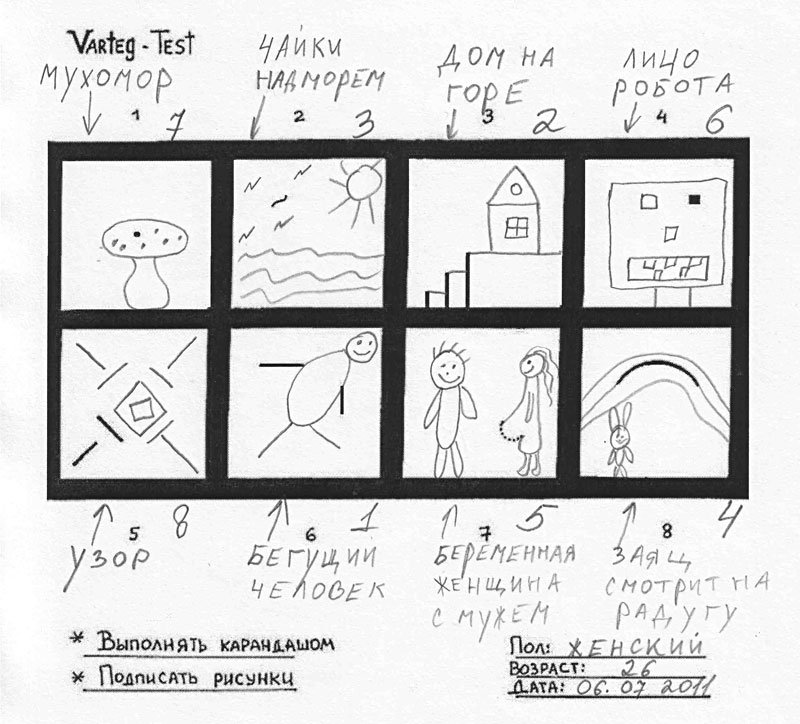 VARTEG - TEST
МУХОМОР
1 7
ЧАЙКИ
НАД МОРЕМ
2 3
ДОМ НА
ГОРЕ
3 2
ЛИЦО
РОБОТА
4 6
5 8
УЗОР
6 1
БЕГУЩИЙ
ЧЕЛОВЕК
7 5
БЕРЕМЕННАЯ
ЖЕНЩИНА
С МУЖЕМ
8 4
ЗАЯЦ
СМОТРИТ НА
РАДУГУ
* ВЫПОЛНЯТЬ КАРАНДАШОМ
* ПОДПИСАТЬ РИСУНКИ
ПОЛ: ЖЕНСКИЙ
ВОЗРАСТ: 26
ДАТА: 06.07 2011